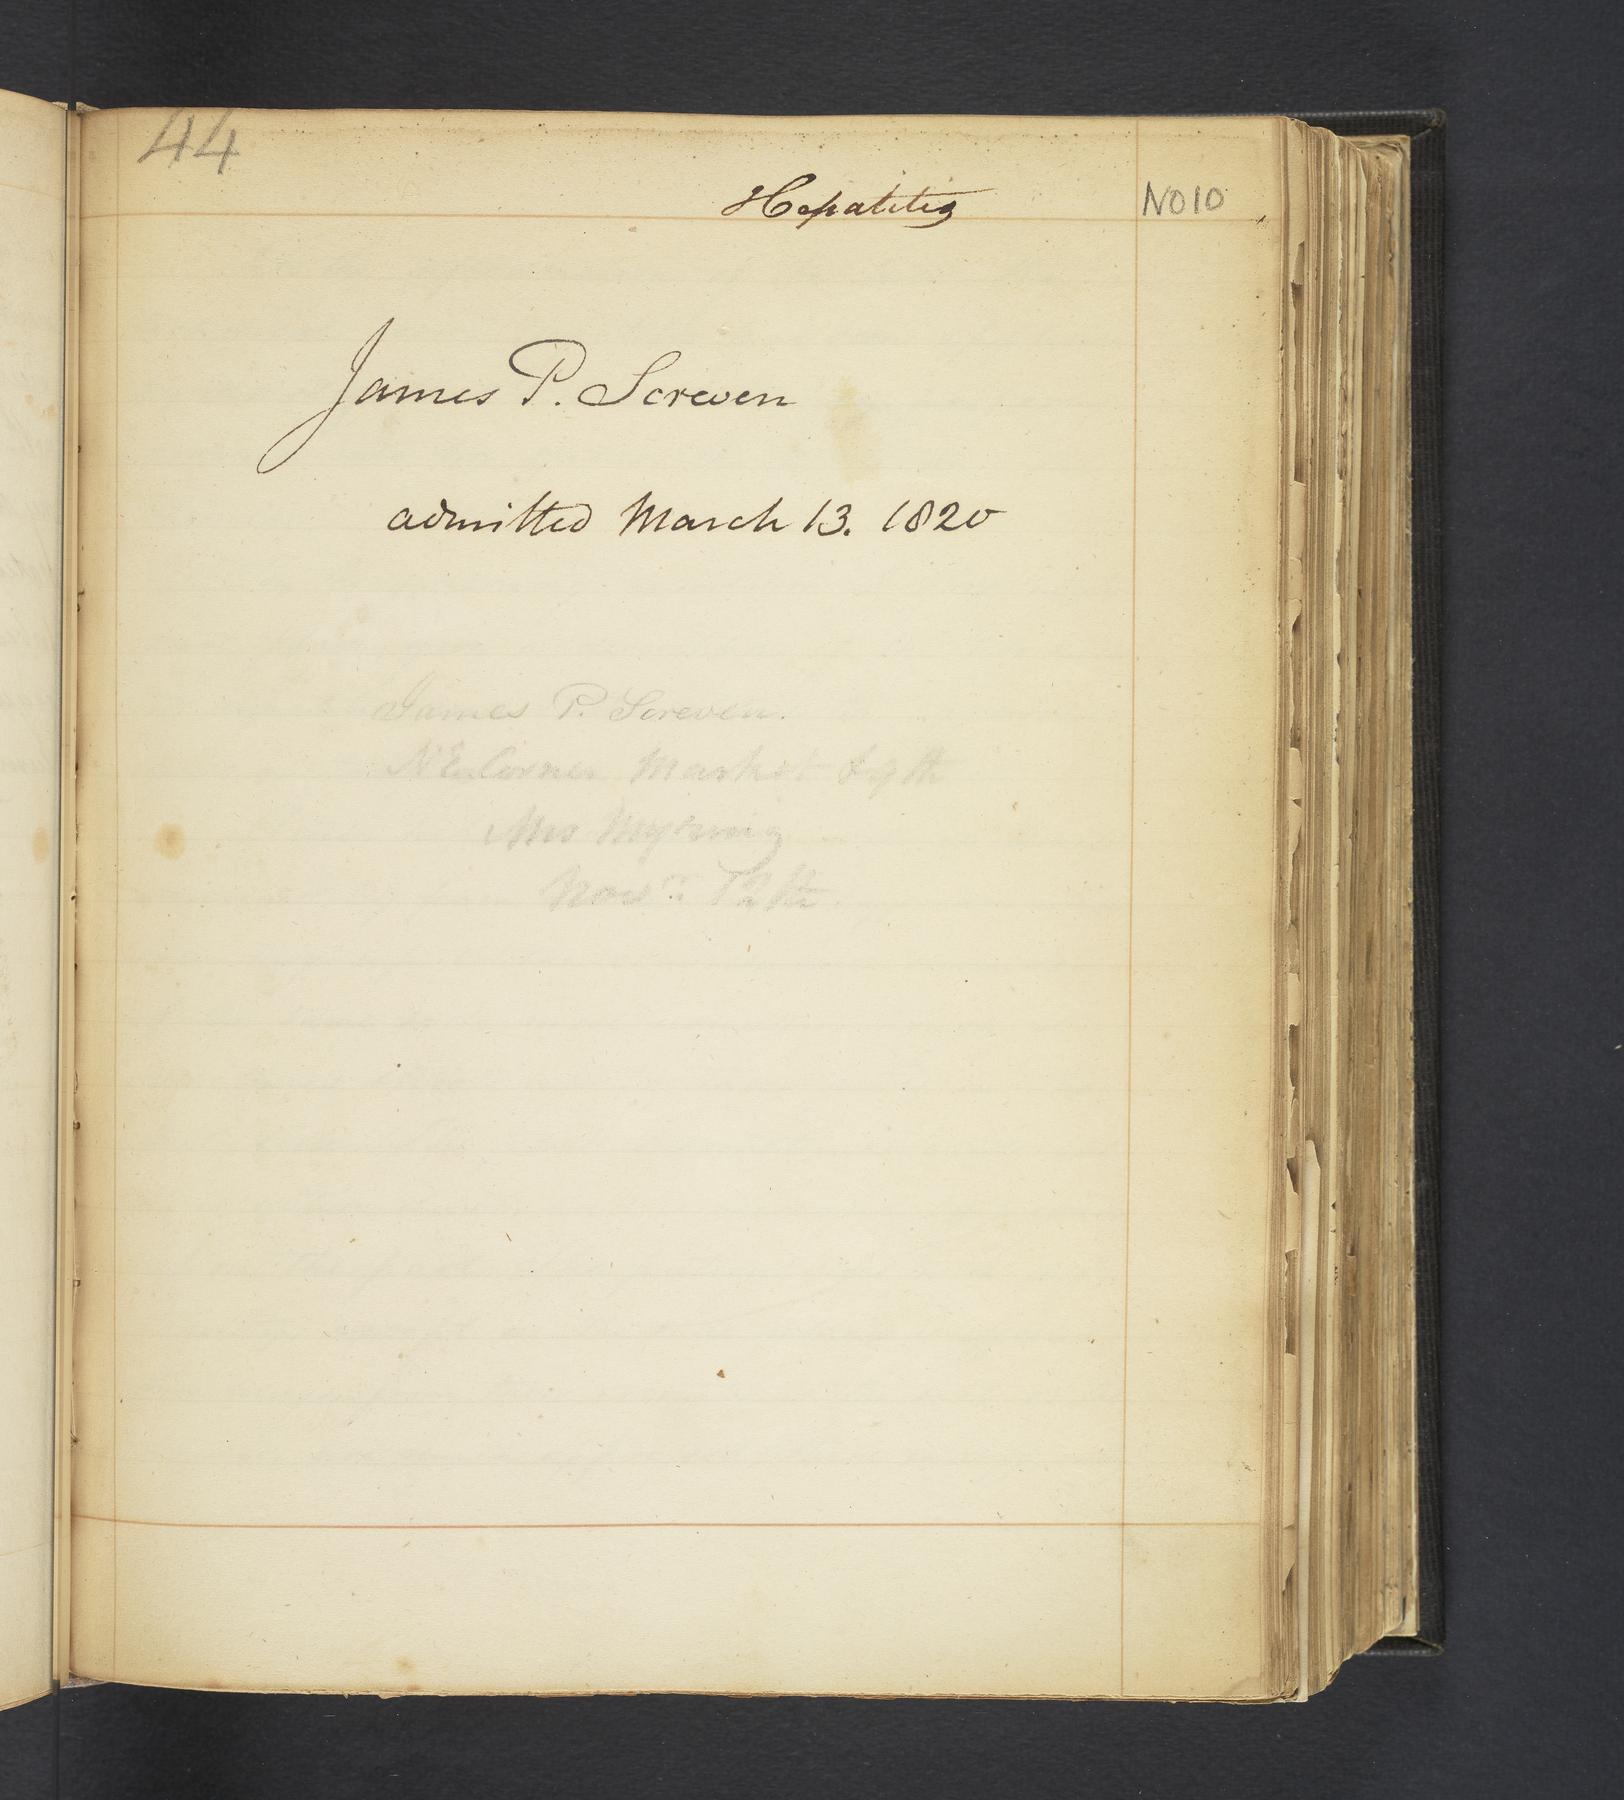 44
Hepatitis
NO 10
James P. Screven
admitted March 13. 1820
James P. Screven.
NE. Corner Market & 9th
Mrs
Novr. 12th